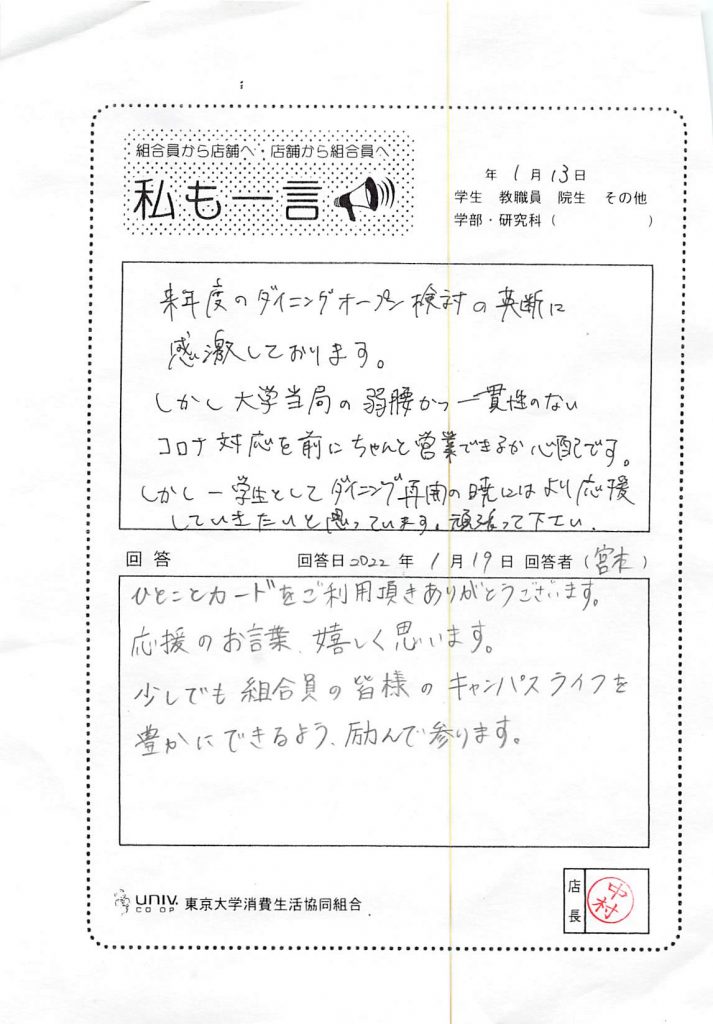 組合員から店舗へ・店舗から組合員へ
私も一言
年 1月13日
学生 教職員 院生 その他
学部・研究科( )
来年度のダイニングオープン検討の英断に
感激しております。
しかし大学当局の弱腰かつ一貫性のない
コロナ対応を前にちゃんと営業できるか心配です。
しかし一学生としてダイニング再開の暁にはより応援
していきたいと思っています。頑張って下さい。
回答 回答日2022年 1月19日 回答者(宮本)
ひとことカードをご利用頂きありがとうございます。
応援のお言葉、嬉しく思います。
少しでも組合員の皆様のキャンパスライフを
豊かにできるよう、励んで参ります。
UNIV. CO-OP 東京大学消費生活協同組合
店長 中村